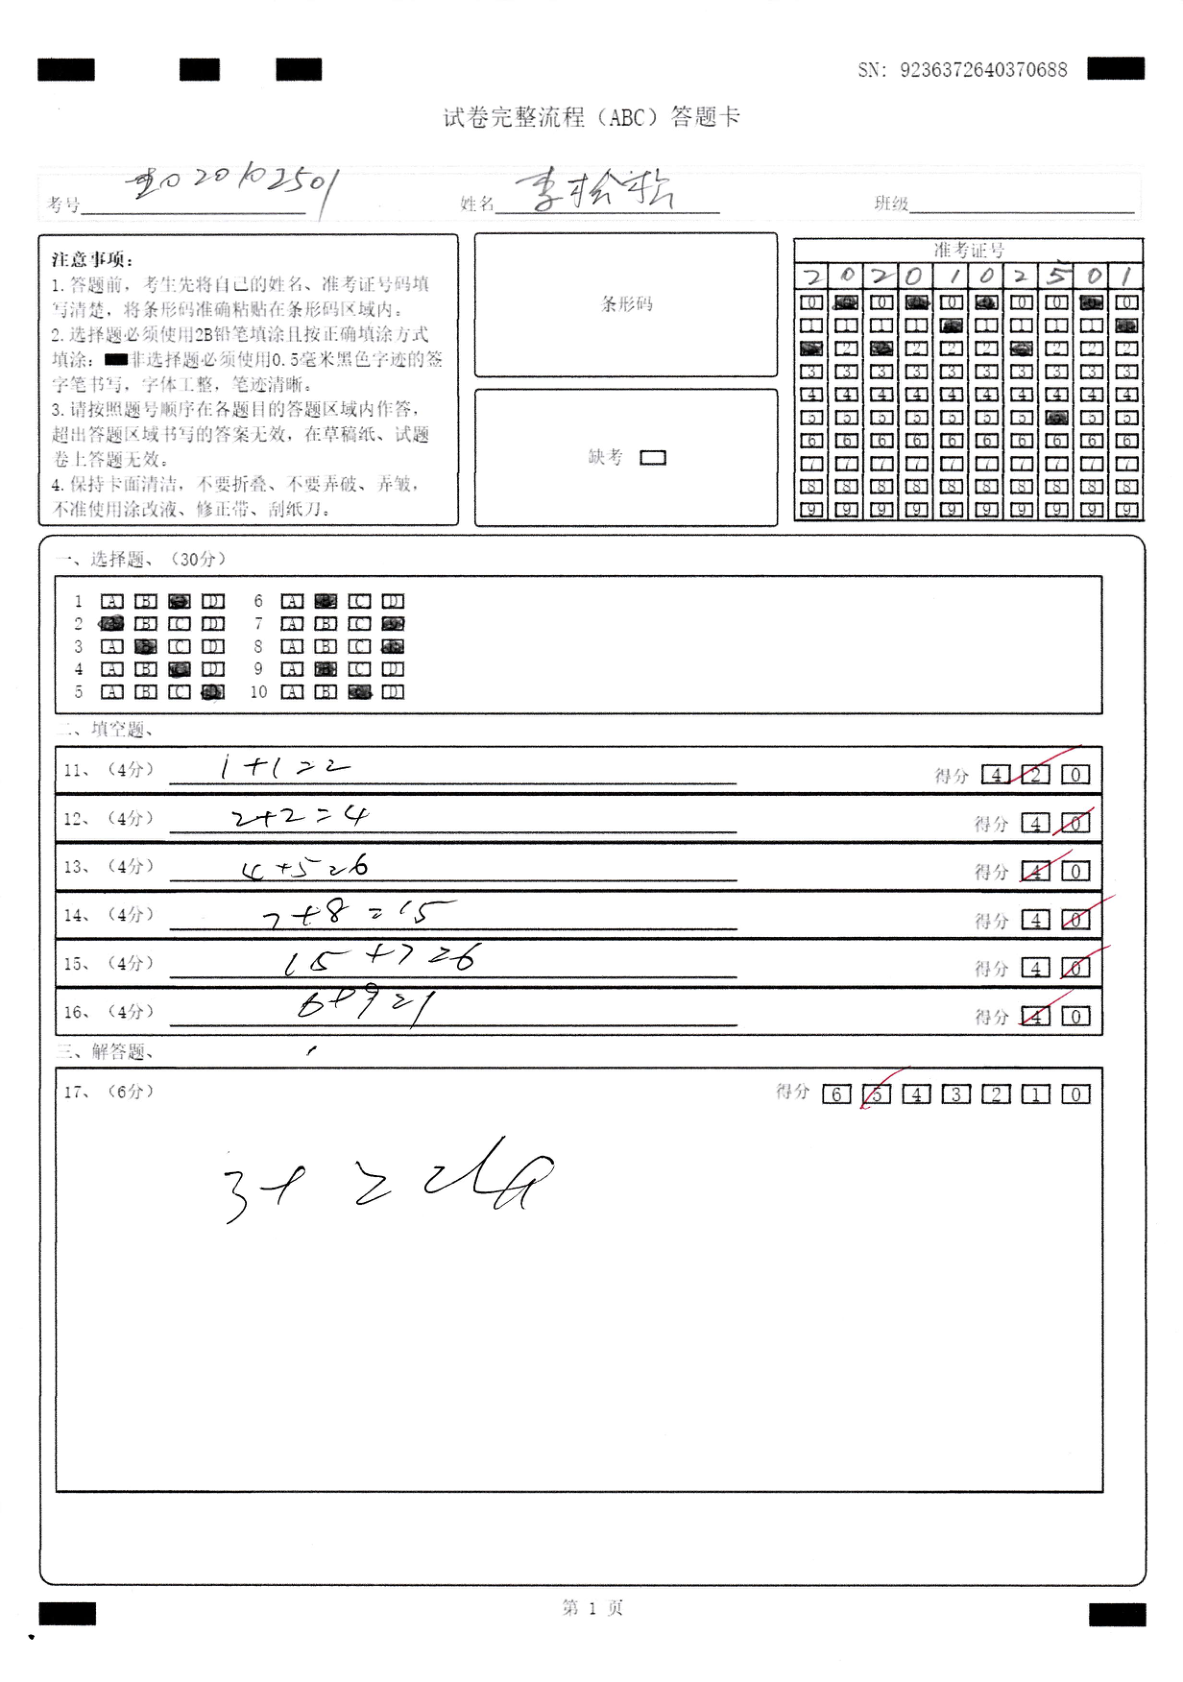 SN: 9236372640370688
试卷完整流程（ABC）答题卡
考号 2020102501 姓名 李松松 班级
注意事项：
1.答题前，考生先将自己的姓名、准考证号码填
写清楚，将条形码准确粘贴在条形码区域内。
2.选择题必须使用2B铅笔填涂且按正确填涂方式
填涂：非选择题必须使用0.5毫米黑色字迹的签
字笔书写，字体工整，笔迹清晰。
3.请按照题号顺序在各题目的答题区域内作答，
超出答题区域书写的答案无效，在草稿纸、试题
卷上答题无效。
4.保持卡面清洁，不要折叠、不要弄破、弄皱，
不准使用涂改液、修正带、刮纸刀。
条形码
缺考
准考证号
2 0 2 0 1 0 2 5 0 1
0 0 0 0 0 0
1 1 1 1 1 1 1 1
2 2 2 2 2 2 2
3 3 3 3 3 3 3 3 3 3
4 4 4 4 4 4 4 4 4 4
5 5 5 5 5 5 5 5 5
6 6 6 6 6 6 6 6 6 6
7 7 7 7 7 7 7 7 7 7
8 8 8 8 8 8 8 8 8 8
9 9 9 9 9 9 9 9 9 9
一、选择题、（30分）
1 A B D 6 A C D
2 B C D 7 A B C
3 A C D 8 A B C
4 A B D 9 A C D
5 A B C 10 A B D
二、填空题、
11、（4分） 1+1=2 得分 4 2 0
12、（4分） 2+2=4 得分 4 0
13、（4分） 4+5=6 得分 4 0
14、（4分） 7+8=15 得分 4 0
15、（4分） 15+7=6 得分 4 0
16、（4分） 6+9=1 得分 4 0
三、解答题、
17、（6分） 得分 6 5 4 3 2 1 0
第 1 页